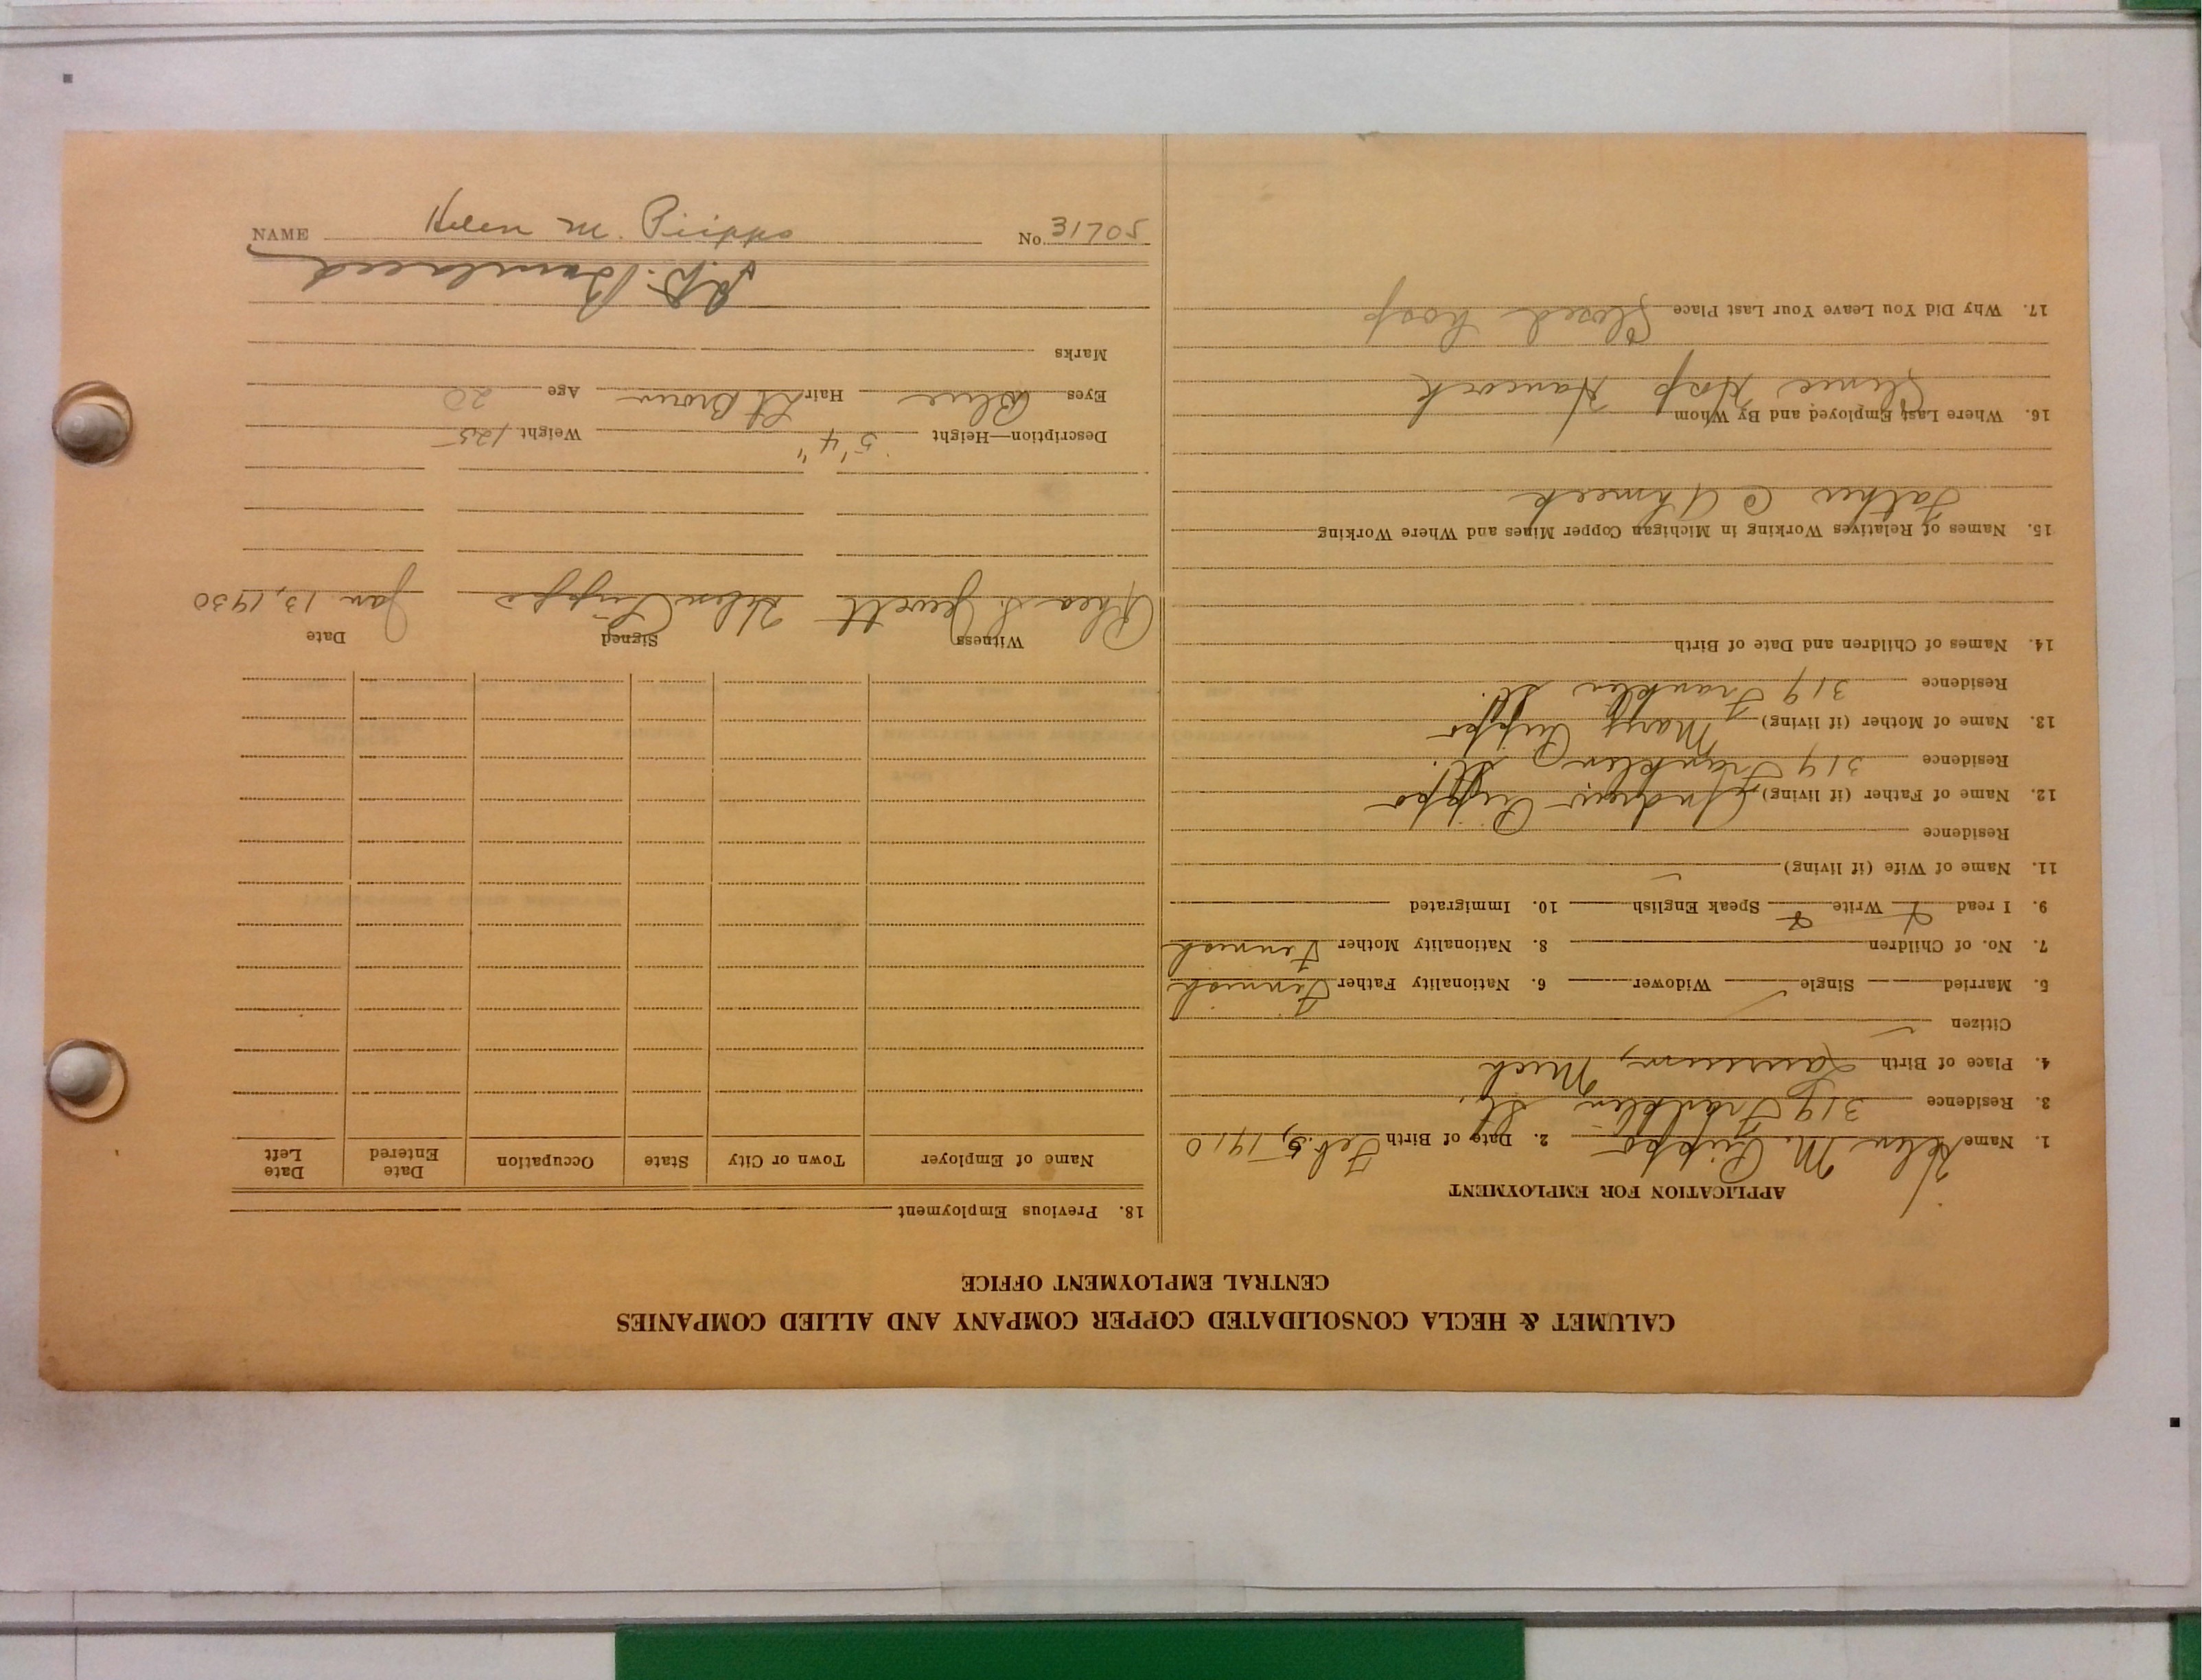 CALUMET & HECLA CONSOLIDATED COPPER COMPANY AND ALLIED COMPANIES
CENTRAL EMPLOYMENT OFFICE
APPLICATION FOR EMPLOYMENT
1. Name Helen M. Piippo 2. Date of Birth Feb. 5, 1910
3. Residence 319 Franklin St.
4. Place of Birth Laurium, Mich
Citizen ✓
5. Married Single ✓ Widower 6. Nationality Father Finnish
7. No. of Children 8. Nationality Mother Finnish
9. I read Write Speak English 10. Immigrated
11. Name of Wife (if living)
Residence
12. Name of Father (if living) Andrew Piippo
Residence 319 Franklin St.
13. Name of Mother (if living) Mary Piippo
Residence 319 Franklin St.
14. Names of Children and Date of Birth
15. Names of Relatives Working in Michigan Copper Mines and Where Working
Father @ Ahmeek
16. Where Last Employed and By Whom
Hosp Hancock
17. Why Did You Leave Your Last Place Closed hosp
18. Previous Employment
Name of Employer Town or City State Occupation Date Entered Date Left
Witness Signed Date
Rhea S. Jewell Helen Piippo Jan 13, 1930
Description—Height 5'4" Weight 125
Eyes Blue Hair Lt Brown Age 20
Marks
NAME Helen M. Piippo No. 31705